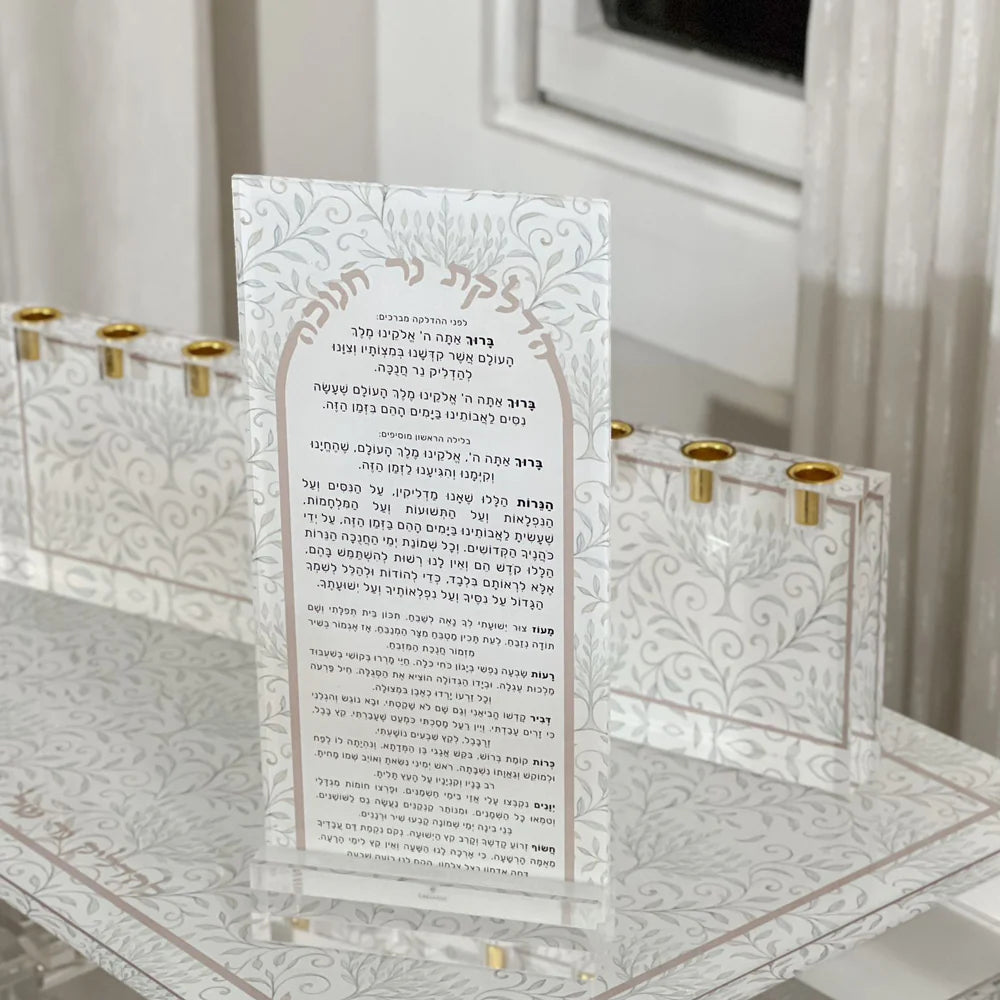 הדלקת נר חנוכה
לפני ההדלקה מברכים:
בָּרוּךְ אַתָּה ה' אֱלֹקֵינוּ מֶלֶךְ
הָעוֹלָם אֲשֶׁר קִדְּשָׁנוּ בְּמִצְוֹתָיו וְצִוָּנוּ
לְהַדְלִיק נֵר חֲנֻכָּה.
בָּרוּךְ אַתָּה ה' אֱלֹקֵינוּ מֶלֶךְ הָעוֹלָם שֶׁעָשָׂה
נִסִּים לַאֲבוֹתֵינוּ בַּיָּמִים הָהֵם בַּזְּמַן הַזֶּה.
בלילה הראשון מוסיפים:
בָּרוּךְ אַתָּה ה', אֱלֹקֵינוּ מֶלֶךְ הָעוֹלָם, שֶׁהֶחֱיָנוּ
וְקִיְּמָנוּ וְהִגִּיעָנוּ לַזְּמַן הַזֶּה.
הַנֵּרוֹת הַלָּלוּ שֶׁאָנוּ מַדְלִיקִין, עַל הַנִּסִּים וְעַל
הַנִּפְלָאוֹת וְעַל הַתְּשׁוּעוֹת וְעַל הַמִּלְחָמוֹת,
שֶׁעָשִׂיתָ לַאֲבוֹתֵינוּ בַּיָּמִים הָהֵם בַּזְּמַן הַזֶּה, עַל יְדֵי
כֹּהֲנֶיךָ הַקְּדוֹשִׁים. וְכָל שְׁמוֹנַת יְמֵי הַחֲנֻכָּה הַנֵּרוֹת
הַלָּלוּ קֹדֶשׁ הֵם וְאֵין לָנוּ רְשׁוּת לְהִשְׁתַּמֵּשׁ בָּהֶם,
אֶלָּא לִרְאוֹתָם בִּלְבָד, כְּדֵי לְהוֹדוֹת וּלְהַלֵּל לְשִׁמְךָ
הַגָּדוֹל עַל נִסֶּיךָ וְעַל נִפְלְאוֹתֶיךָ וְעַל יְשׁוּעָתֶךָ.
מָעוֹז צוּר יְשׁוּעָתִי לְךָ נָאֶה לְשַׁבֵּחַ. תִּכּוֹן בֵּית תְּפִלָּתִי וְשָׁם
תּוֹדָה נְזַבֵּחַ. לְעֵת תָּכִין מַטְבֵּחַ מִצָּר הַמְנַבֵּחַ. אָז אֶגְמוֹר בְּשִׁיר
מִזְמוֹר חֲנֻכַּת הַמִּזְבֵּחַ.
רָעוֹת שָׂבְעָה נַפְשִׁי בְּיָגוֹן כֹּחִי כָּלָה. חַיַּי מֵרְרוּ בְּקוֹשִׁי בְּשִׁעְבּוּד
מַלְכוּת עֶגְלָה. וּבְיָדוֹ הַגְּדוֹלָה הוֹצִיא אֶת הַסְּגֻלָּה. חֵיל פַּרְעֹה
וְכָל זַרְעוֹ יָרְדוּ כְּאֶבֶן בִּמְצוּלָה.
דְּבִיר קָדְשׁוֹ הֱבִיאַנִי וְגַם שָׁם לֹא שָׁקַטְתִּי. וּבָא נוֹגֵשׂ וְהִגְלַנִי
כִּי זָרִים עָבַדְתִּי. וְיֵין רַעַל מָסַכְתִּי כִּמְעַט שֶׁעָבַרְתִּי. קֵץ בָּבֶל.
זְרֻבָּבֶל. לְקֵץ שִׁבְעִים נוֹשַׁעְתִּי.
כְּרוֹת קוֹמַת בְּרוֹשׁ, בִּקֵּשׁ אֲגָגִי בֶּן הַמְּדָתָא, וְנִהְיָתָה לוֹ לְפַח
וּלְמוֹקֵשׁ וְגַאֲוָתוֹ נִשְׁבָּתָה. רֹאשׁ יְמִינִי נִשֵּׂאתָ וְאוֹיֵב שְׁמוֹ מָחִיתָ.
רֹב בָּנָיו וְקִנְיָנָיו עַל הָעֵץ תָּלִיתָ.
יְוָנִים נִקְבְּצוּ עָלַי אֲזַי בִּימֵי חַשְׁמַנִּים. וּפָרְצוּ חוֹמוֹת מִגְדָּלַי
וְטִמְּאוּ כָּל הַשְּׁמָנִים. וּמִנּוֹתַר קַנְקַנִּים נַעֲשָׂה נֵס לַשּׁוֹשַׁנִּים.
בְּנֵי בִינָה יְמֵי שְׁמוֹנָה קָבְעוּ שִׁיר וּרְנָנִים.
חֲשׂוֹף זְרוֹעַ קָדְשֶׁךָ וְקָרֵב קֵץ הַיְשׁוּעָה. נְקֹם נִקְמַת דַּם עֲבָדֶיךָ
מֵאֻמָּה הָרְשָׁעָה. כִּי אָרְכָה לָנוּ הַשָּׁעָה וְאֵין קֵץ לִימֵי הָרָעָה.
דְּחֵה אַדְמוֹן בְּצֵל צַלְמוֹן. הָקֵם לָנוּ רוֹעֶה שִׁבְעָה.